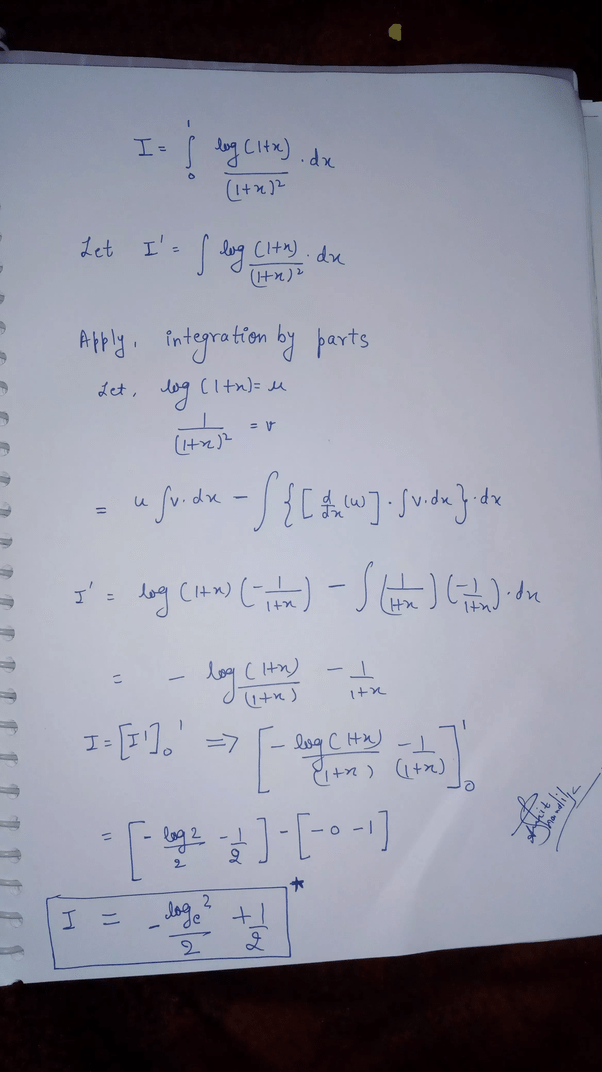 I = ∫₀¹ log(1+x)/(1+x)² · dx
Let I' = ∫ log(1+x)/(1+x)² · dx
Apply, integration by parts
Let, log(1+x) = u
1/(1+x)² = v
= u ∫v·dx − ∫{[d/dx(u)] · ∫v·dx}·dx
I' = log(1+x)(−1/(1+x)) − ∫(1/(1+x))(−1/(1+x))·dx
= − log(1+x)/(1+x) − 1/(1+x)
I = [I']₀¹ ⇒ [− log(1+x)/(1+x) − 1/(1+x)]₀¹
= [− log2/2 − 1/2] − [−0 −1]
I = − logₑ2/2 + 1/2 ★